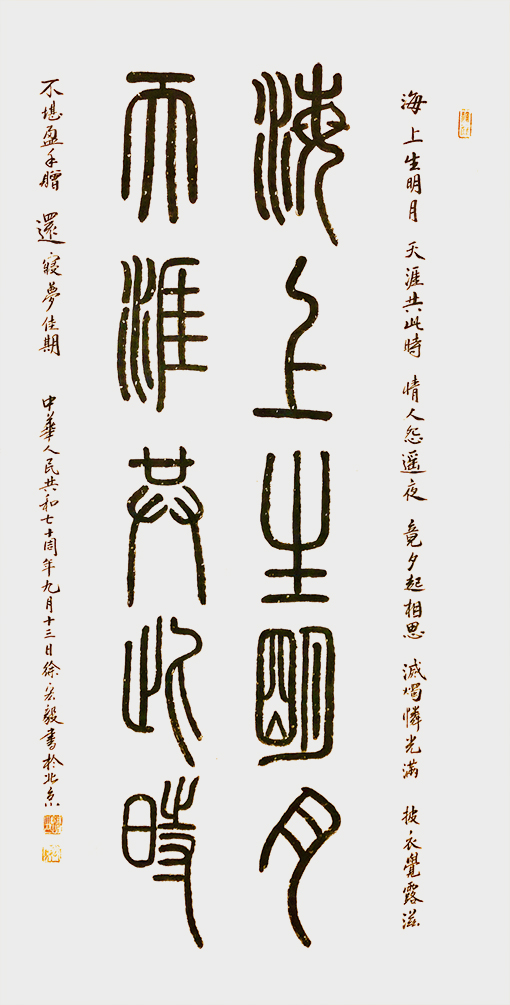 海上生明月
天涯共此時
海上生明月 天涯共此時 情人怨遥夜 竟夕起相思 滅燭憐光滿 披衣覺露滋
不堪盈手贈 還寢夢佳期 中華人民共和七十周年九月十三日徐宏毅書於北京